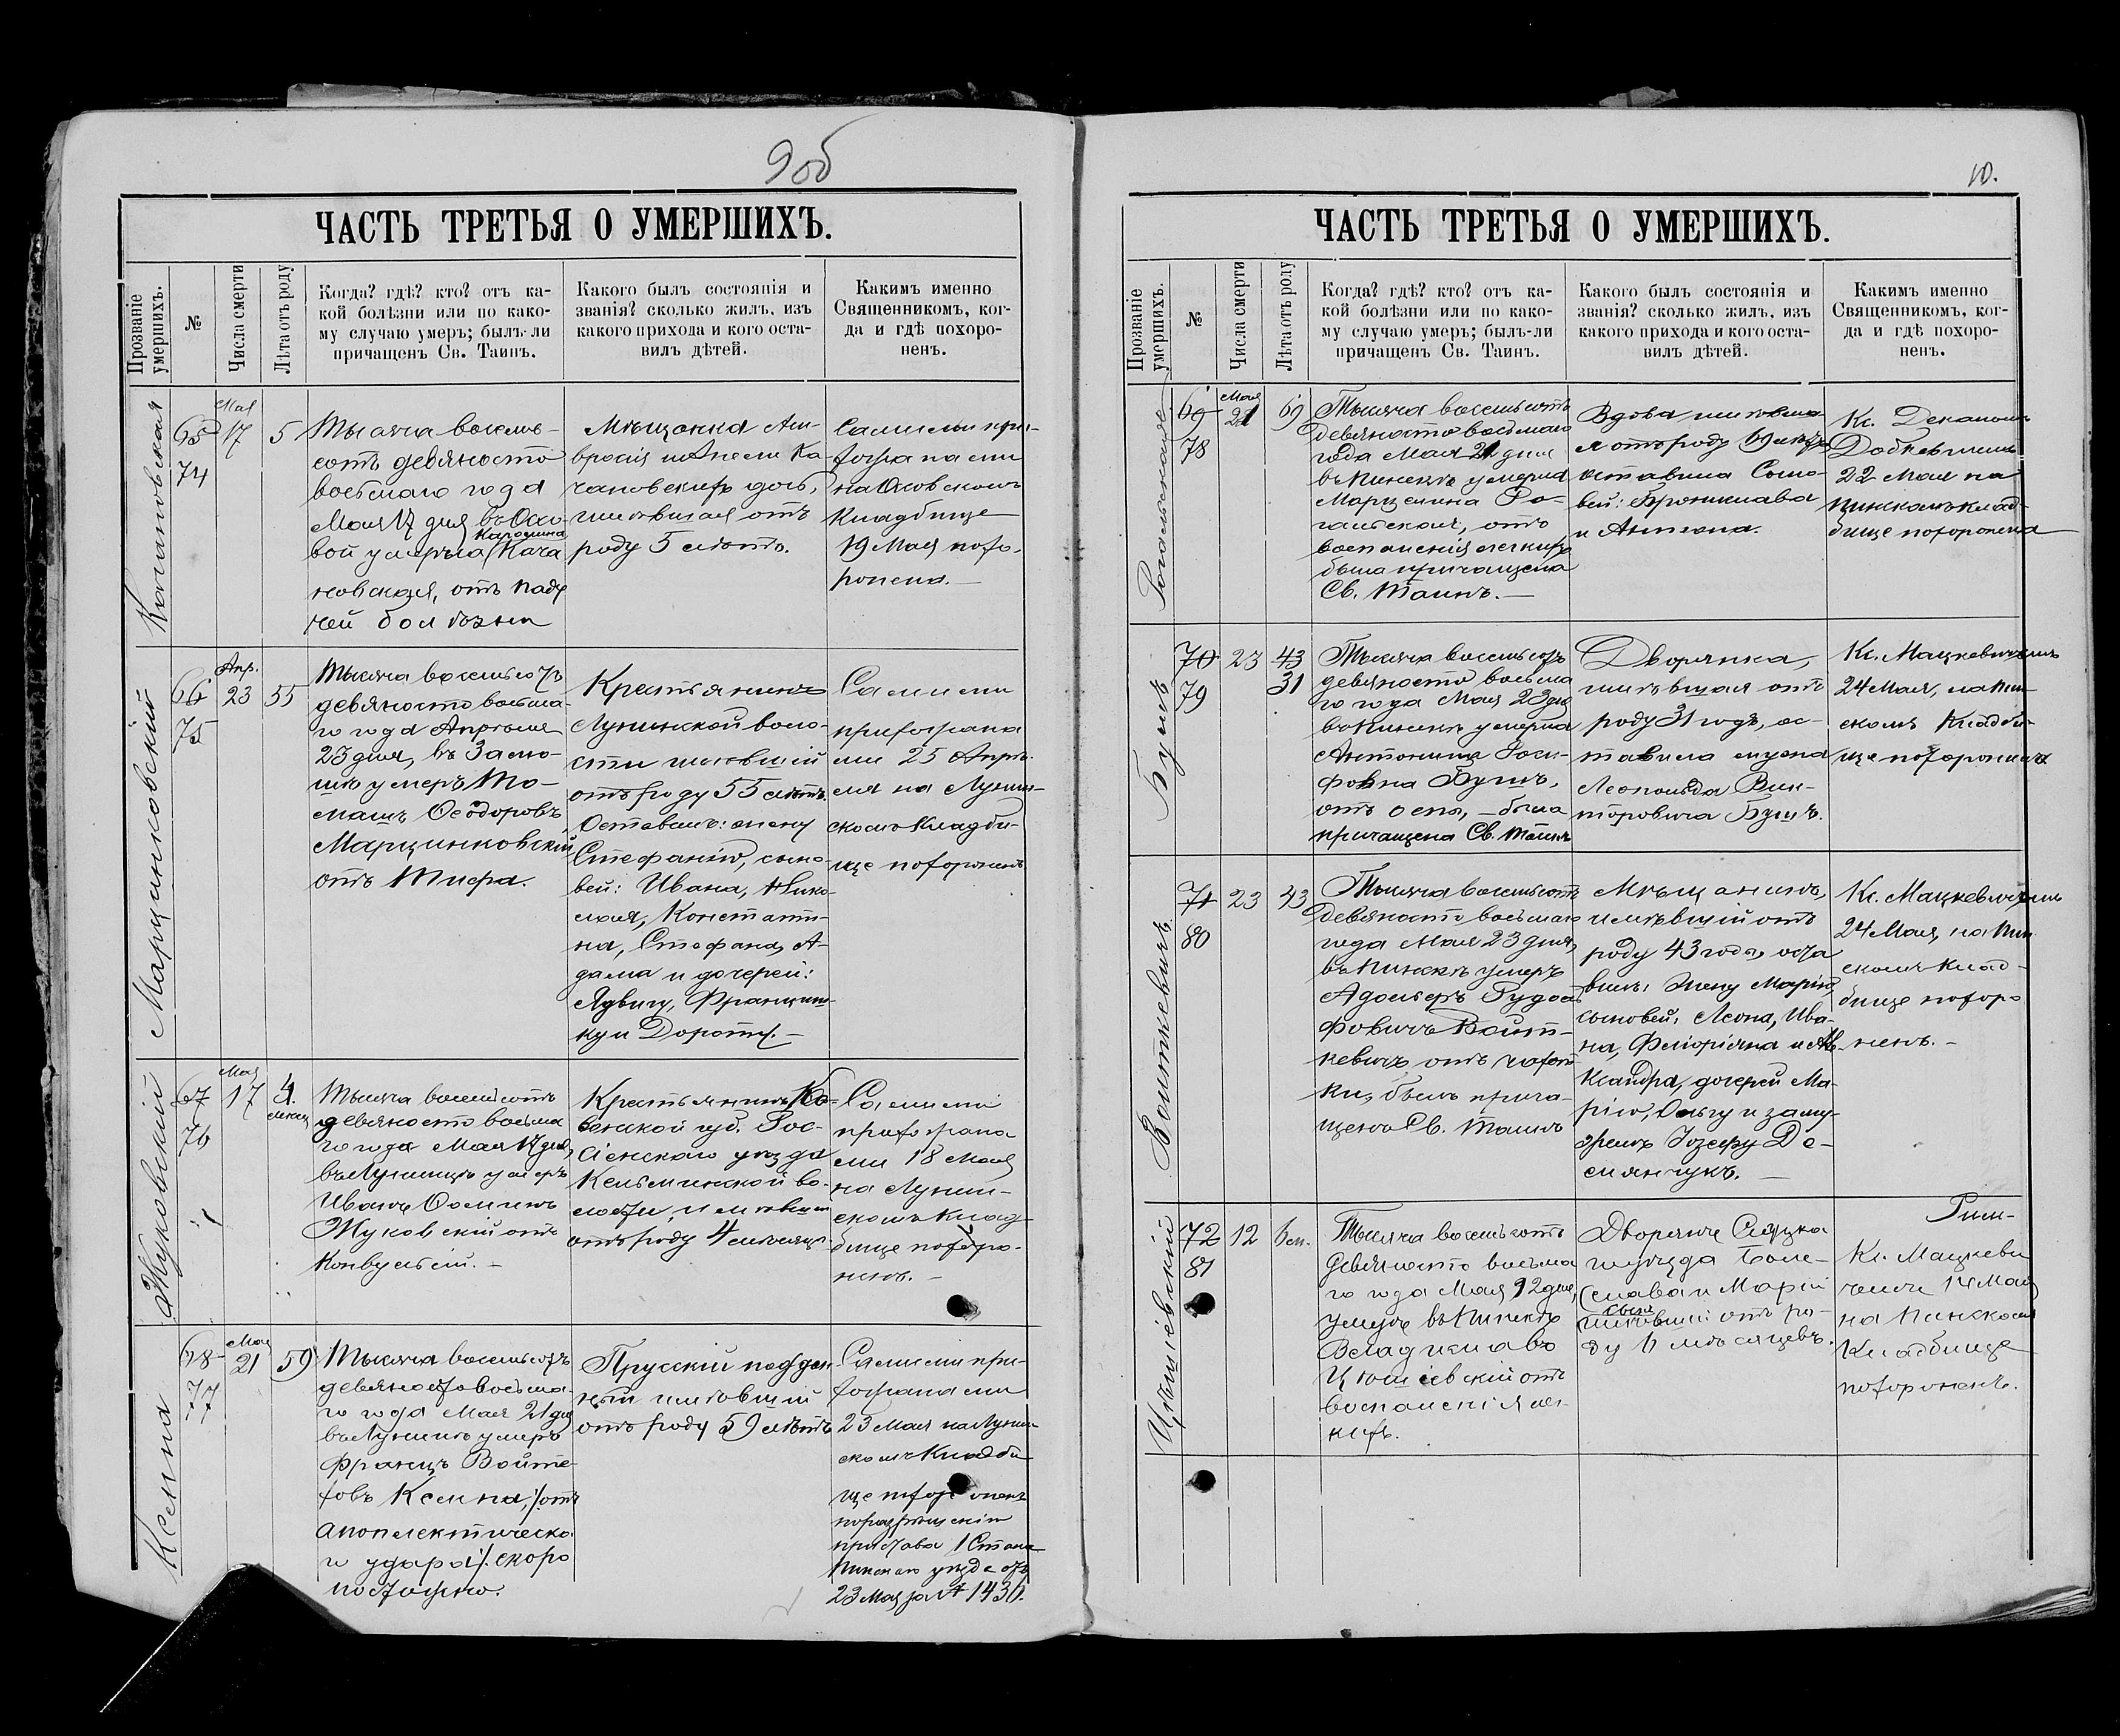 9об
ЧАСТЬ ТРЕТЬЯ О УМЕРШИХЪ.
Прозваніе умершихъ.
№
Числа смерти
Лѣта отъ роду
Когда? гдѣ? кто? отъ ка-
кой болѣзни или по како-
му случаю умеръ; былъ-ли
причащенъ Св. Таинъ.
Какого былъ состоянія и
званія? сколько жилъ, изъ
какого прихода и кого оста-
вилъ дѣтей.
Какимъ именно
Священникомъ, ког-
да и гдѣ похоро-
ненъ.
Качановская
65
74
Мая
17
5
Тысяча восемь-
сотъ девяносто
восьмаго года
Мая 17 дня въ Осо-
вой умерла Каролина Кача
новская, отъ паду
чей болѣзни
Мѣщанка Ам-
вросія и Анели Ка-
чановскихъ дочь,
жившая отъ
роду 5 лѣтъ.
Самими при-
хожанами
на Осовскомъ
Кладбище
19 Мая похо-
ронена.
Марцинковскій
66
75
Апр.
23
55
Тысяча восемьсотъ
девяносто восьма-
го года Апрѣля
23 дня, въ
умеръ То-
машъ Ѳеодоровъ
Марцинковскій,
отъ Тифа.
Крестьянинъ
Лунинской воло-
сти жившій
отъ роду 55 лѣтъ.
Оставилъ: жену
Стефанію, сыно-
вей: Ивана, Нико-
лая, Константи-
на, Стефана, А-
дама и дочерей:
Ядвигу, Францишку
и Дороту.
Самими
прихожана
ми 25 Апрѣ-
ля на Лунин-
скомъ Кладби-
ще похороненъ
Жуковскій
67
76
Мая
17
4.
мѣсяц
Тысяча восемьсотъ
девяносто восьма
го года Мая 17 дня,
въ Лунинцѣ умеръ
Иванъ Осиповъ
Жуковскій отъ
Конвульсій.
Крестьянинъ Ко-
венской губ. Рос-
сіенскаго уезда
Кельминской во-
лости, жившій
отъ роду 4 мѣсяца.
Самими
прихожана
ми 18 Мая
на Лунин-
скомъ Клад-
бище похоро-
ненъ.
Ксемпа
68
77
Мая
21
59
Тысяча восемьсотъ
девяносто восьма-
го года Мая 21 дня
въ Лунинѣ умеръ
Францъ Войте-
ховъ Ксемпа, отъ
апоплектическа
го удара/. скоро
постижно.
Прусскій поддан-
ный жившій
отъ роду 59 лѣтъ
Самими при-
хожанами
23 Мая на Лунин-
скомъ Кладби
ще похороненъ
по разрѣшенію
пристава 1 Стана
Пинскаго уѣзда отъ
23 Мая за № 1436.
10.
ЧАСТЬ ТРЕТЬЯ О УМЕРШИХЪ.
Прозваніе умершихъ.
№
Числа смерти
Лѣта отъ роду
Когда? гдѣ? кто? отъ ка-
кой болѣзни или по како-
му случаю умеръ; былъ-ли
причащенъ Св. Таинъ.
Какого былъ состоянія и
званія? сколько жилъ, изъ
какого прихода и кого оста-
вилъ дѣтей.
Какимъ именно
Священникомъ, ког-
да и гдѣ похоро-
ненъ.
69
78
Мая
21
69
Тысяча восемьсотъ
девяносто восьмаго
года Мая 21 дня
въ Пинскѣ умерла
Марцелина Ро-
гальская, отъ
воспаленія легкихъ
была причащена
Св. Таинъ.
Вдова жившая
отъ роду 69 лѣтъ
оставила Сыно-
вей: Бронислава
и Антона.
Кс. Деканомъ
22 Мая на
Пинскомъ клад-
бище похоронена
Бушъ
70
79
23
43
31
Тысяча восемьсотъ
девяносто восьма
го года Мая 23 дня
въ Пинскѣ умерла
Антонина Іоси-
фовна Бушъ,
отъ оспы, была
причащена Св. Таинъ
Дворянка,
жившая отъ
роду 31 годъ, ос-
тавила мужа
Леопольда Вик-
торовича Бушъ.
Кс. Мацкевичемъ
24 Мая, на Пин-
скомъ Кладби-
ще похоронена
Войткевичъ
71
80
23
43
Тысяча восемьсотъ
девяносто восьмаго
года Мая 23 дня,
въ Пинскѣ умеръ
Адольфъ Рудоль
фовичъ Войт-
кевичъ отъ чахот
ки, былъ прича-
щенъ Св. Таинъ
Мѣщанинъ,
жившій отъ
роду 43 года, оста
вилъ: Жену Марію,
сыновей: Леона, Ива-
на, Флоріяна и Але-
ксандра, дочерей Ма-
рію, Ольгу и заму-
жемъ Іозефу Де-
мянчукъ.
Кс. Мацкевичемъ
24 Мая, на Пин
скомъ Клад-
бище похоро
ненъ.
72
81
12
6 м.
Тысяча восемьсотъ
девяносто восьма
го года Мая 12 дня,
умеръ въ Пинскѣ
Владиславъ
отъ
воспаленія лег-
кихъ.
Дворянъ Слуцка
го уѣзда Боле-
слава и Маріи
сынъ
жившій отъ ро-
ду 6 мѣсяцевъ.
Кс. Мацкеви
чемъ 14 Мая
на Пинскомъ
Кладбище
похороненъ.